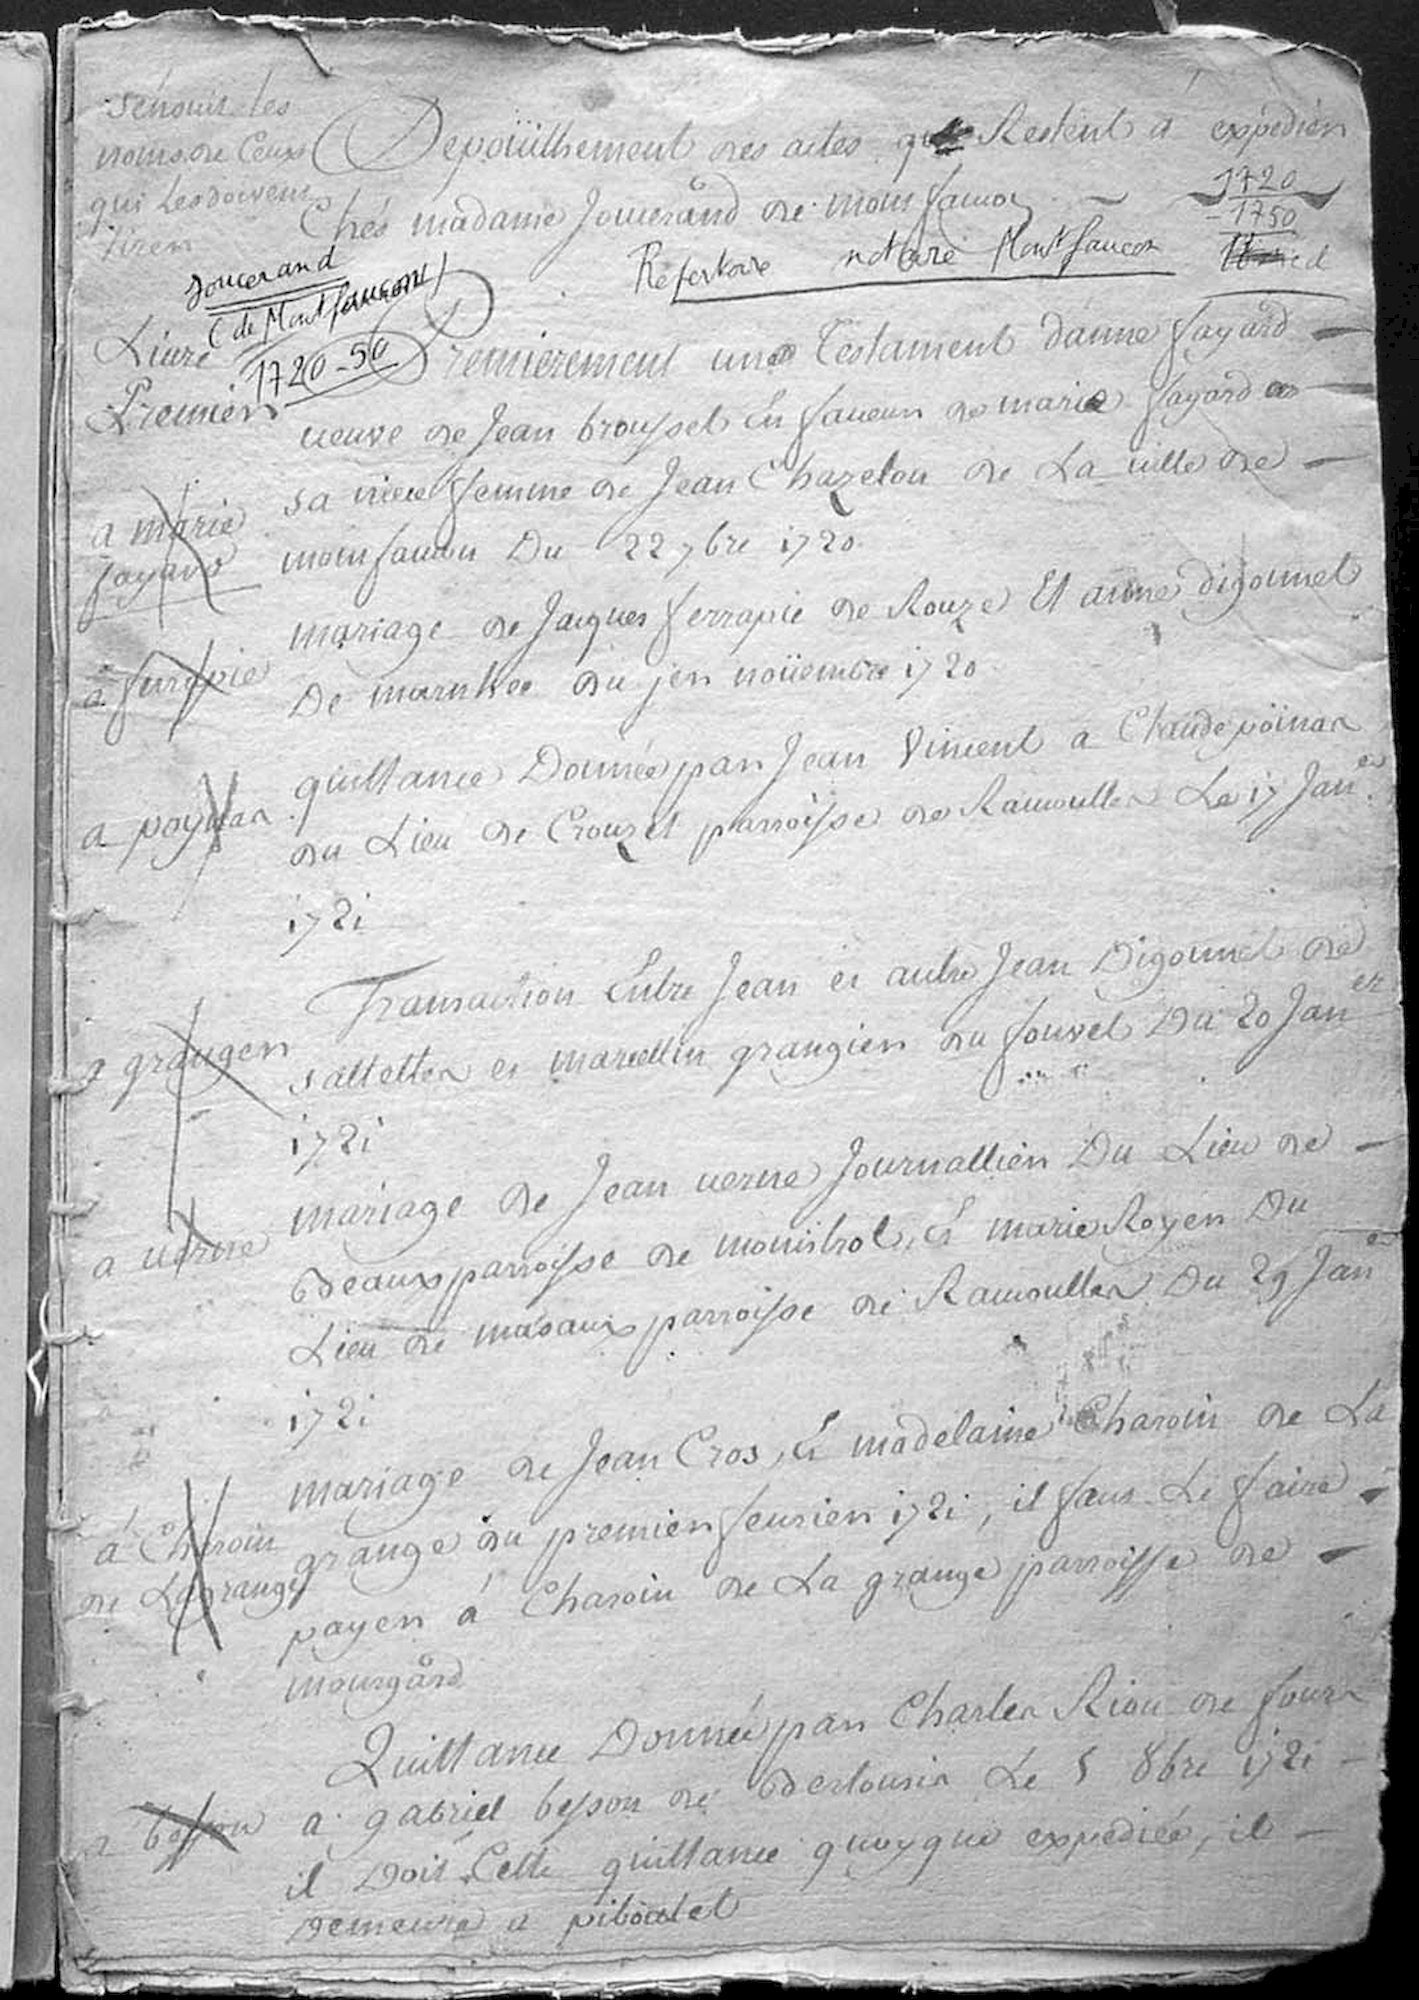 sénouin les
noms de Ceux
qui Les doivent
tiren
Depoüillement des actes qui Restent à expédien
Chés madame Jouuerand de monfaucon
1720
-1750
Repertoire notaire Montfaucon
Joucerand
(de Montfaucon)
1720-50
Liure
Premien
Premierement une Testament danne fayard
ueuve de Jean brousset En faueur de marie fayard
sa niece femme de Jean Chazelon de La uille de
monfaucon Du 22 7bre 1720
a marie
fayard
mariage de Jaques ferrapie de Rouze Et anne digonnet
De marnhec du jen noüembre 1720
a ferapie
quittance Donnée par Jean Vincent a Claude poinar
du Lieu de Crouzet parroisse de Raucoulles Le 17 Janer
1721
a poynar
Transaction Entre Jean et autre Jean Digonnet de
salettes et marcellin grangien du fouvet Du 20 Janer
1721
a grangen
mariage de Jean uerne Journallien Du Lieu de
Beaux parroisse de monistrol, Et marie Royen Du
Lieu de masaux parroisse de Raucoulles Du 29 Janer
1721
a uerne
mariage de Jean Cros, Et madelaine Charoin de La
grange du premien feurien 1721, il faut Le faire
payen à Charoin de La grange parroisse de
mourgard
à Charoin
de Lagrange
Quittance Donnée par Charles Riou de fours
a gabriel besson de Berlousia Le 5 8bre 1721
il Doit Cette quittance quoyque expediée, il
Demeure a piboulet
a besson